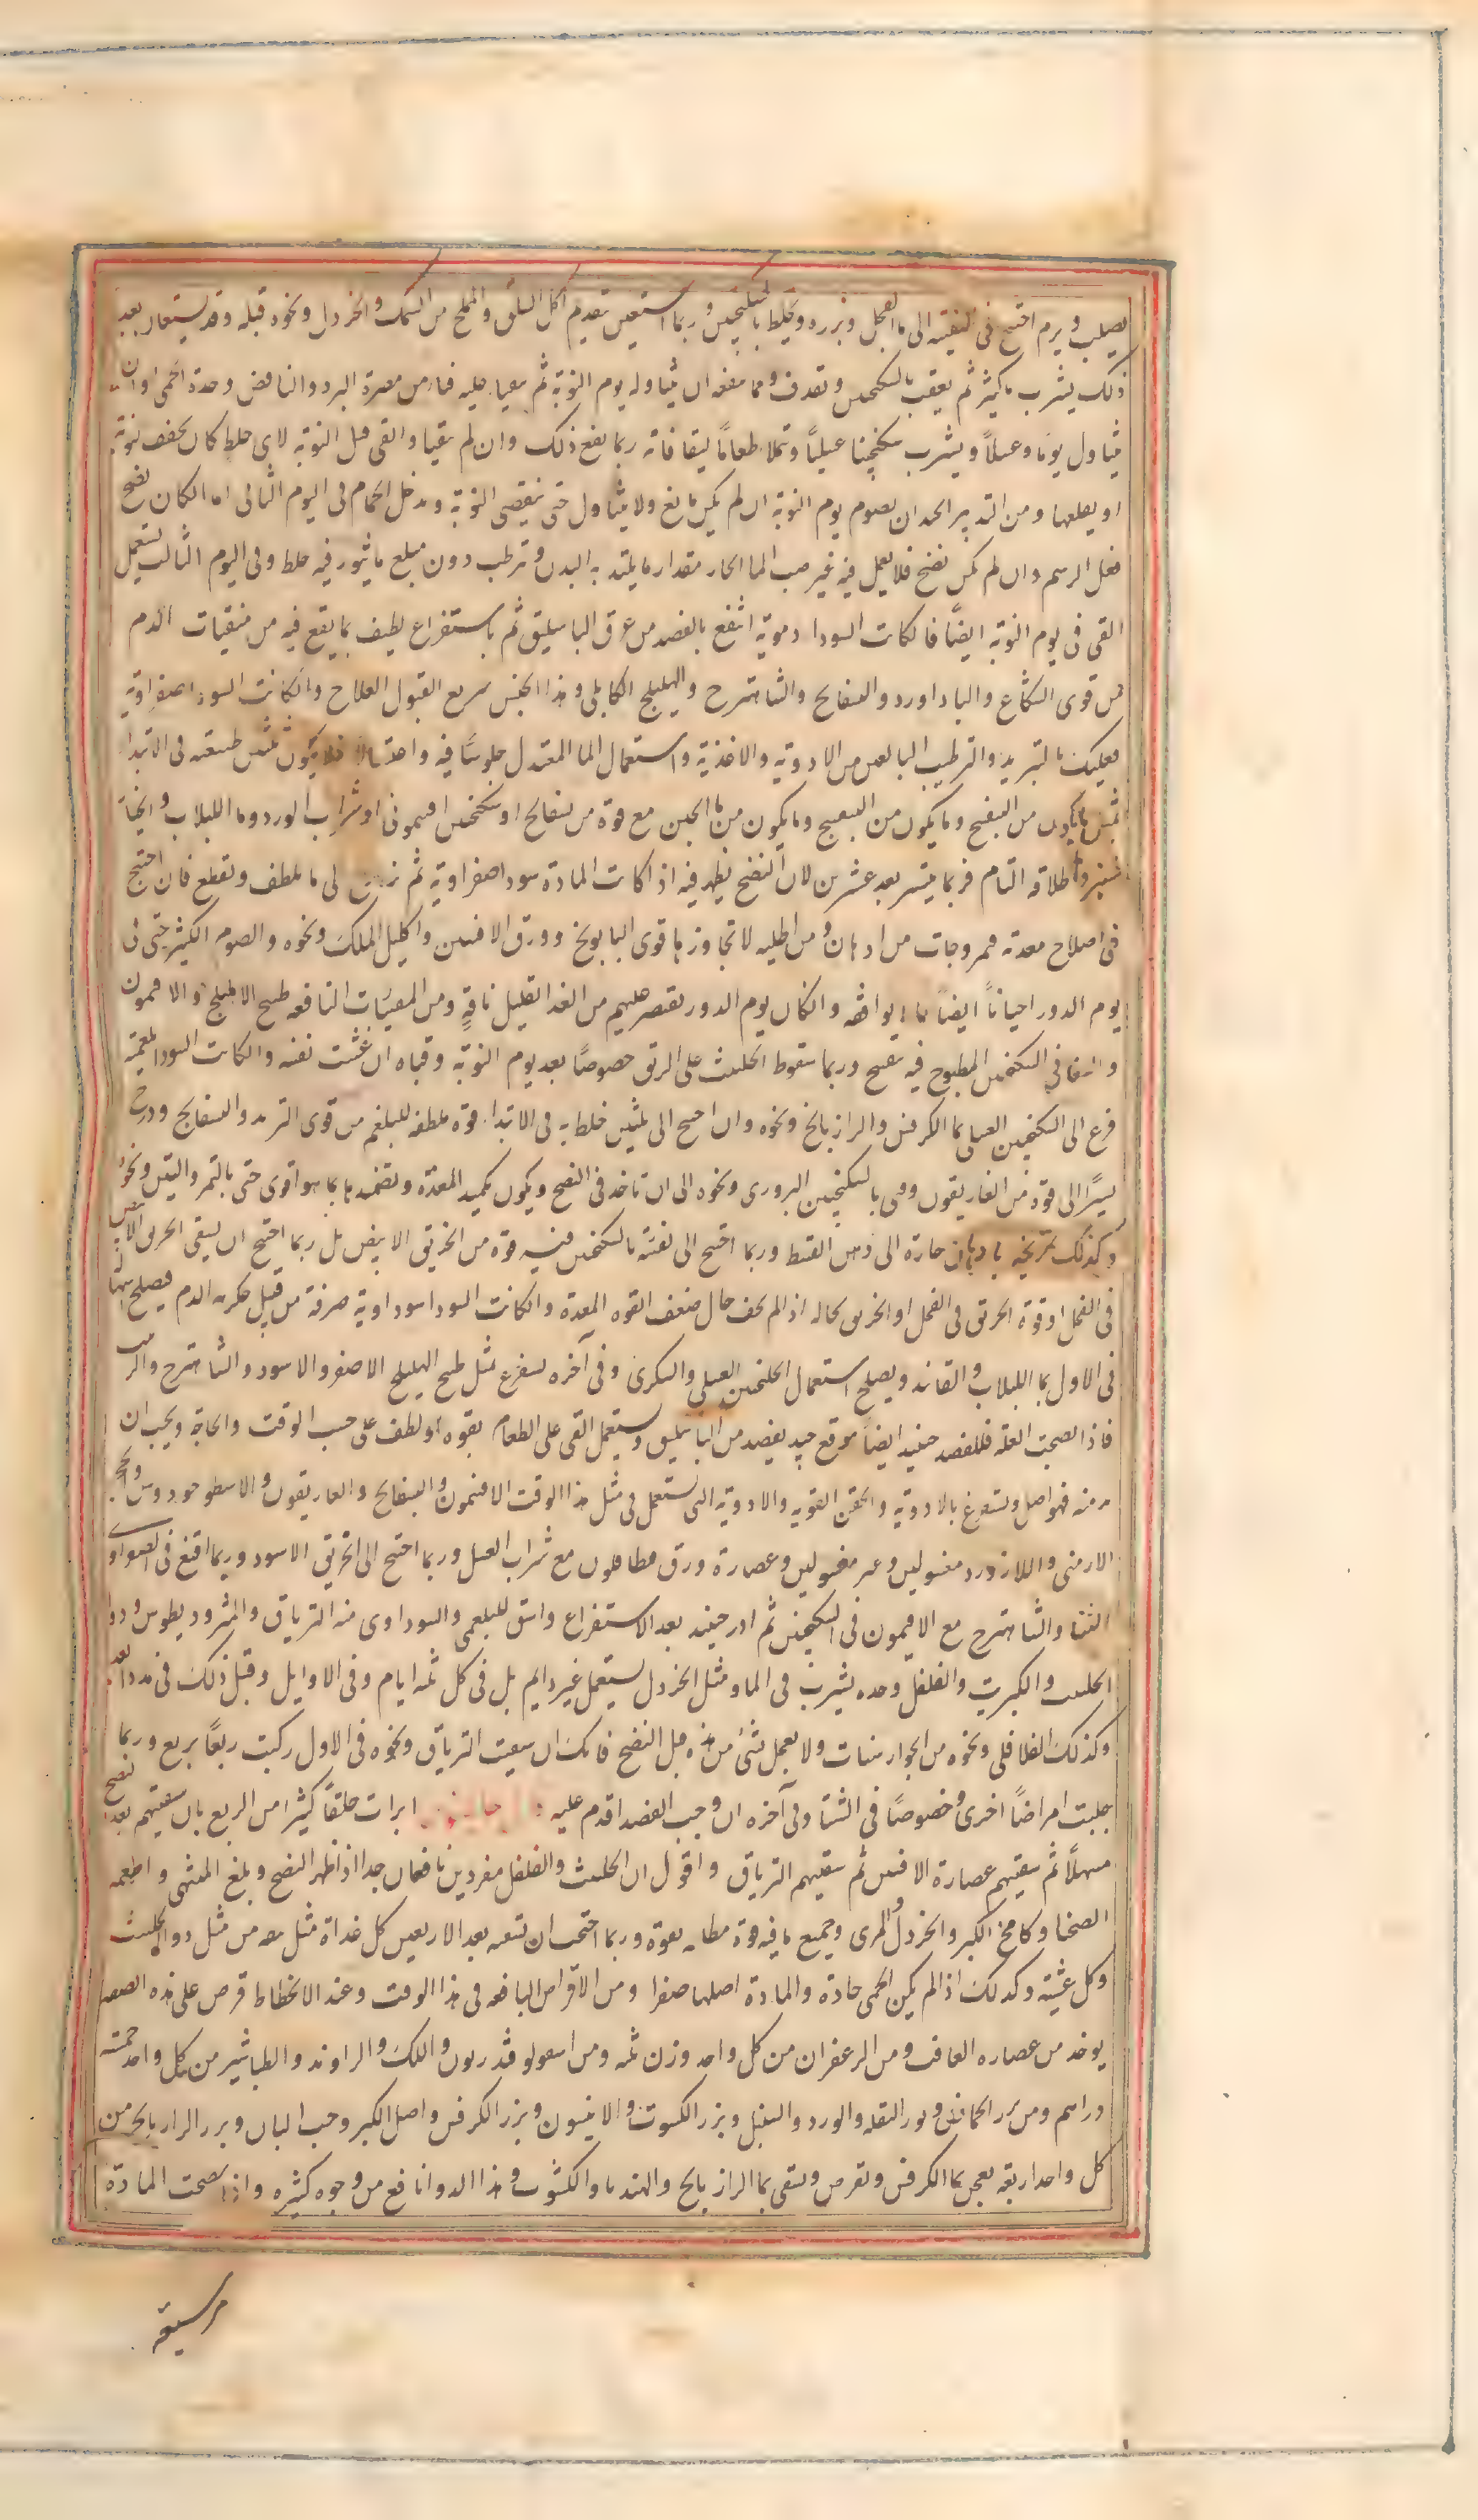 يصلب ويرم احتيج فى تنقيته الى ماء الفجل وبزره ويخلط بالسكنجبين وربما استعين بتقديم اكل السلق والمملح من السمك والخردل ونحوه قبله وقد يستعان بعد
ذلك بشرب ماء كثير ثم يعقب بالسكنجبين وتقذف ومما منعه ان يتناوله يوم النوبة ثم يتقيا عليه فامن من مضرة البرد والنافض وحدة الحمى او ان
يتناول يوما وعسلاً ويشرب سكنجبينا عسليًا وتملا طعامًا ليتقا فانه ربما نفع ذلك وان لم يتقيا والقى قبل النوبة لاى خلط كان يخفف نوبة
او يقلعها ومن التدبير الجيد ان يصوم يوم النوبة ان لم يكن مانع ولا يتناول حتى تنقضى النوبة ويدخل الحمام فى اليوم الثانى اما ان كان نضج
فعل الرسم وان لم يكن نضج فلا يعمل فيه غير صب الما الحار مقدار ما يلتذ به البدن وترطب دون مبلغ ما يثور فيه خلط وفى اليوم الثالث يستعمل
القى فى يوم النوبة ايضًا فان كانت السودا دموية انتفع بالفصد من عرق الباسليق ثم باستفراغ لطيف بما يقع فيه من منقيات الدم
من قوى الشكاع والباداورد والبسفايج والشاهترج والهليلج الكابلى وهذا الجنس سريع القبول للعلاج وان كانت السودا صفراوية
فعليك بالتبريد والترطيب البالغين من الادوية والاغذية واستعمال الما المعتدل جلوسًا فيه واغتسالا فلا يكون تليين طبيعته فى الابتدا
بمثل ما يكون من البنفسج وما يكون من البنفسج وما يكون من ماء الجبن مع قوة من بسفايج او سكنجبين افتيمونى او شراب الورد وما اللبلاب والخيار
شنبر واطلاقه التام فربما يتيسر بعد عشرين لان النضج يظهر فيه اذا كانت المادة سودا صفراوية ثم الى ما يلطف ويقطع فان احتيج
فى اصلاح معدته فمروخات من ادهان ومن اطليه لا تجاوز بها قوى البابونج وورق الافسنتين واكليل الملك ونحوه والصوم الكثير حتى فى
يوم الدور احيانًا ايضًا مما لا يوافقه وان كان يوم الدور تقتصر عليهم من الغذا بقليل نافةٍ ومن المعينات النافعه طبيخ الاهليلج والافتيمون
وايضا فى السكنجبين المطبوخ فيه بسفايج وربما سقوط الحلتيت على الريق خصوصًا بعد يوم النوبة وقياه ان غثت نفسه وان كانت السودا بلغمية
فزع الى السكنجبين العسلى بما الكرفس والرازيانج ونحوه وان احتيج الى تليين خلط به فى الابتدا قوة ملطفه للبلغم من قوى التربد والبسفايج ودرج
يسيرًا الى قوة من الغاريقون وقى بالسكنجبين البزورى ونحوه الى ان تاخذ فى النضج ويكون تكميد المعدة وتضميدها بما هو اقوى حتى بالتمر والتين ونحوه
وكذلك تمريخه بادهان حارة الى دهن القسط وربما احتيج الى نقيه بالسكنجبين فيه قوة من الخربق الابيض بل ربما احتيج ان يسقى الخربق الابيض
فى الفجل او قوة الخربق فى الفجل او الخربق بحاله اذ الم يخف حال ضعف القوه المعدة وان كانت السودا سوداوية صرفة من قبل عكر الدم فيصلح
فى الاول بما اللبلاب والقانند ويصلح استعمال الجلنجبين العسلى والسكرى وفى آخره يستفرغ بمثل طبيخ الهليلج الاصفر والاسود والشاهترج والزبيب
فاذا نضجت العلة فللفصد حينيذ ايضا موقع جيد يفصد من الباسليق ويستعمل القى على الطعام بقوه او لطف على حسب الوقت والحاجة ويجب ان
مدمنه فهو اصل ويستفرغ بالادوية والحقن القويه والادوية التى تستعمل فى مثل هذا الوقت الافتيمون والبسفايج والغاريقون والاسطوخودوس والحجر
الارمنى واللازورد مغسولين وغير مغسولين وعصارة ورق مطافلون مع شراب العسل وربما احتيج الى الخربق الاسود وربما اقنع فى
السنا والشاهترج مع الافتيمون فى السكنجبين ثم ادر حينيذ بعد الاستفراغ واسق للبلغمى والسوداوى منه الترياق والمثروديطوس ودوا
الحلتيت والكبريت والفلفل وحده يشرب فى الما ومثل الخردل يستعمل غير دايم بل فى كل ثلثه ايام وفى الاوايل وقبل ذلك فى مدد ابعد
وكذلك الفلافلى ونحوه من الجوارشنات ولا يعمل بشئ من هذه قبل النضج فانك ان سقيت الترياق ونحوه فى الاول ركبت ربعًا بربع وربما
جلبت امراضًا اخرى وخصوصًا فى الشتا وفى آخره ان وجب الفصد اقدم عليه ابرات خلقًا كثيرًا من الربع بان سقيتهم بعد نضج
مسهلًا ثم سقيتهم عصارة الافسنتين ثم سقيتهم الترياق واقول ان الحلتيت والفلفل مفردين نافعان جدا اذا ظهر النضج وبلغ المنتهى واطعمه
الصحنا وكامخ الكبر والخردل والمرى وجميع ما فيه قوة ملطفه بقوة وربما احتجت ان تسقيه بعد الاربعين كل غداة مثل بندقه من مثل دوا الحلتيت
وكل عشية وكذلك اذا لم يكن الحمى حادة والمادة اصلها صفرا ومن الاقراص النافعه فى هذا الوقت وعند الانحطاط قرص على هذه الصفه
يوخذ من عصاره الغافت ومن الزعفران من كل واحد وزن ثلثه ومن اسقولوقندريون واللك والراوند والطباشير من كل واحد خمسة
دراهم ومن بزر الحماض وبزر البقله والورد والسنبل وبزر الكشوث والانيسون وبزر الكرفس واصل الكبر وحب البان وبزر الرازيانج من
كل واحد اربعة يعجن بما الكرفس وتقرص ويسقى بما الرازيانج والهندبا والكشوث وهذا الدوا نافع من وجوه كثيره واذا نضجت المادة